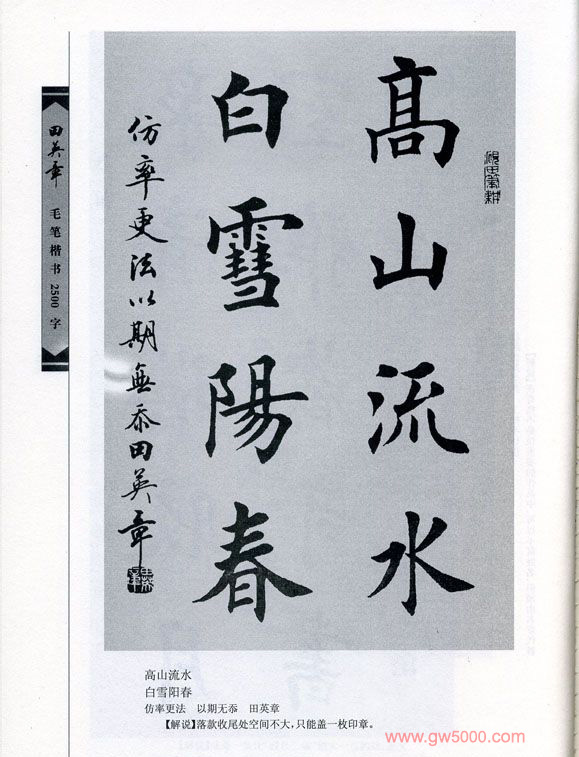 田英章 毛笔楷书2500字
高山流水
白雪陽春
仿率更法以期無忝田英章
高山流水
白雪阳春
仿率更法 以期无忝 田英章
【解说】落款收尾处空间不大，只能盖一枚印章。
www.gw5000.com